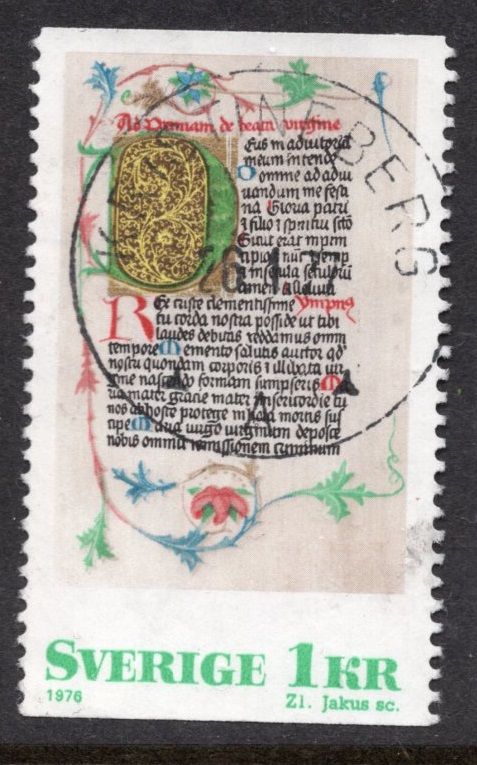 Ad Primam de beata virgine
Deus in adiutoriu
meum intende
Domine ad adiu
uandum me festi
na Gloria patri
⁊ filio ⁊ spiritui scto
Sicut erat in prin
cipio ⁊ nunc
⁊ in secula seculoru
amen alleluia
Rex criste clementissime Ympnus
tu corda nostra posside ut tibi
laudes debitas reddamus omni
tempore Memento salutis auctor qd
nostri quondam corporis illibata vir
gine nascendo formam sumpseris Ma
ria mater gracie mater misericordie tu
nos ab hoste protege in hora mortis sus
cipe Maria virgo virginum deposce
nobis omnium remissionem criminum
26.1.77
SVERIGE 1 KR
1976 Zl. Jakus sc.